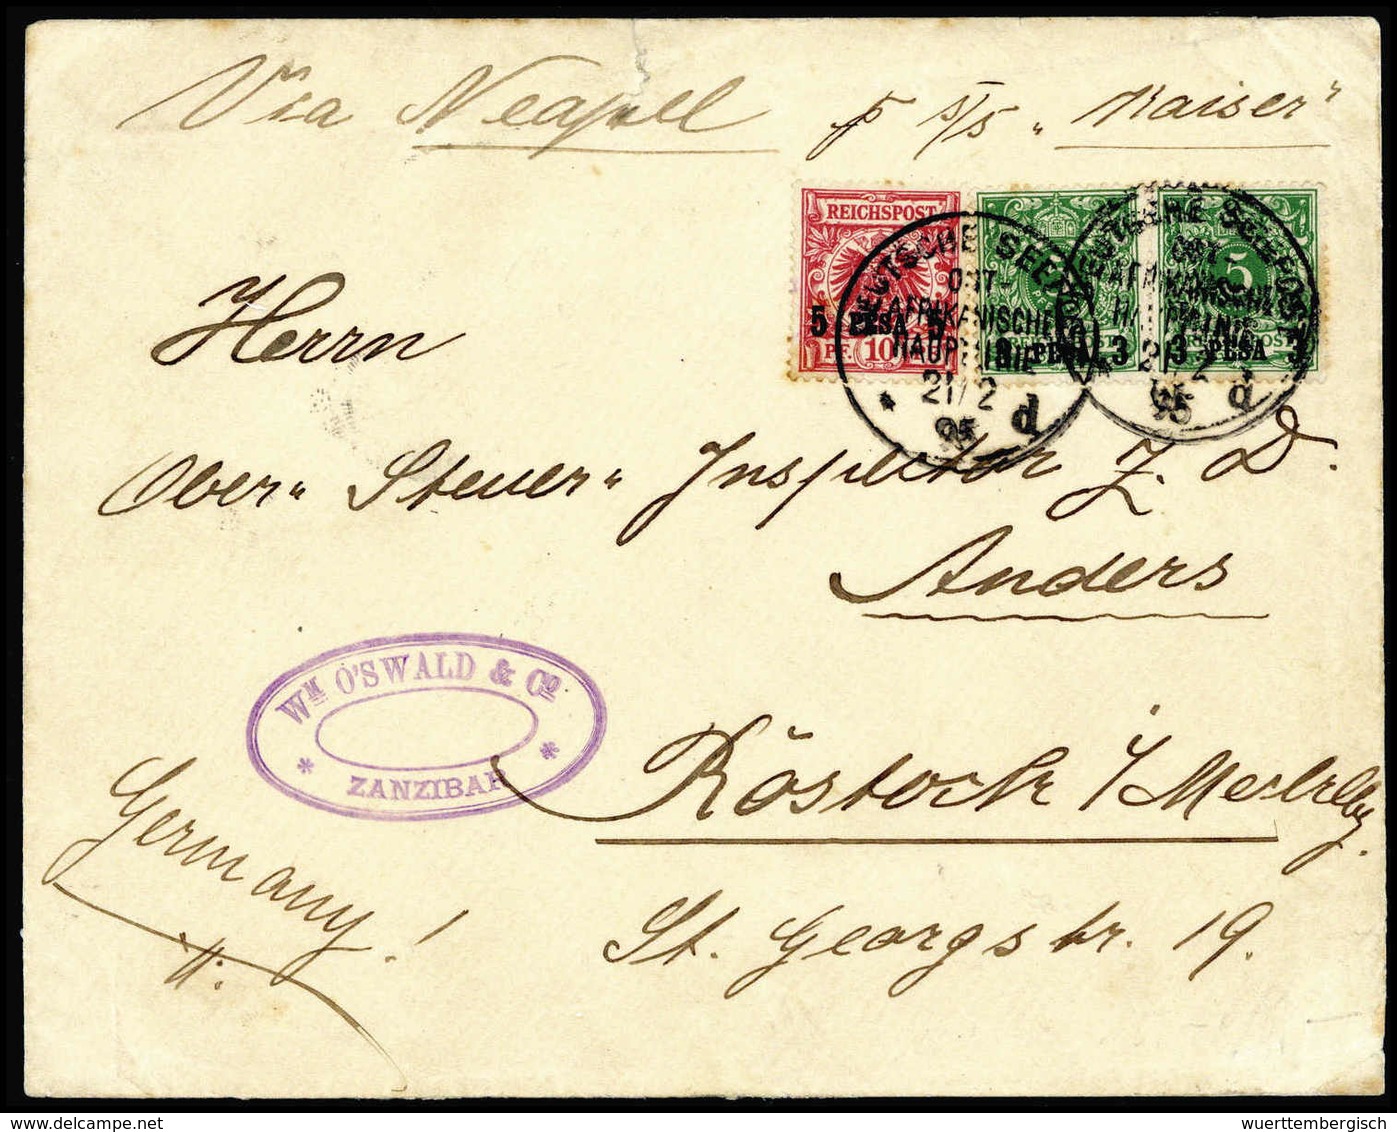 Via Neapel p s/s „Kaiser"
REICHSPOST
5 PESA 5
PF. 10
3 PESA 3
5
3 PESA 3
DEUTSCHE SEEPOST
OST-
AFRIKANISCHE
HAUPTLINIE
21/2
95
d
DEUTSCHE SEEPOST
OST-
AFRIKANISCHE
HAUPTLINIE
21/2
95
d
Herrn
Ober- Steuer- Inspector z. D.
Anders
WM O'SWALD & CO
* ZANZIBAR *
Rostock i/Mecklbg.
Germany!
St. Georgstr. 19.
wuerttembergisch